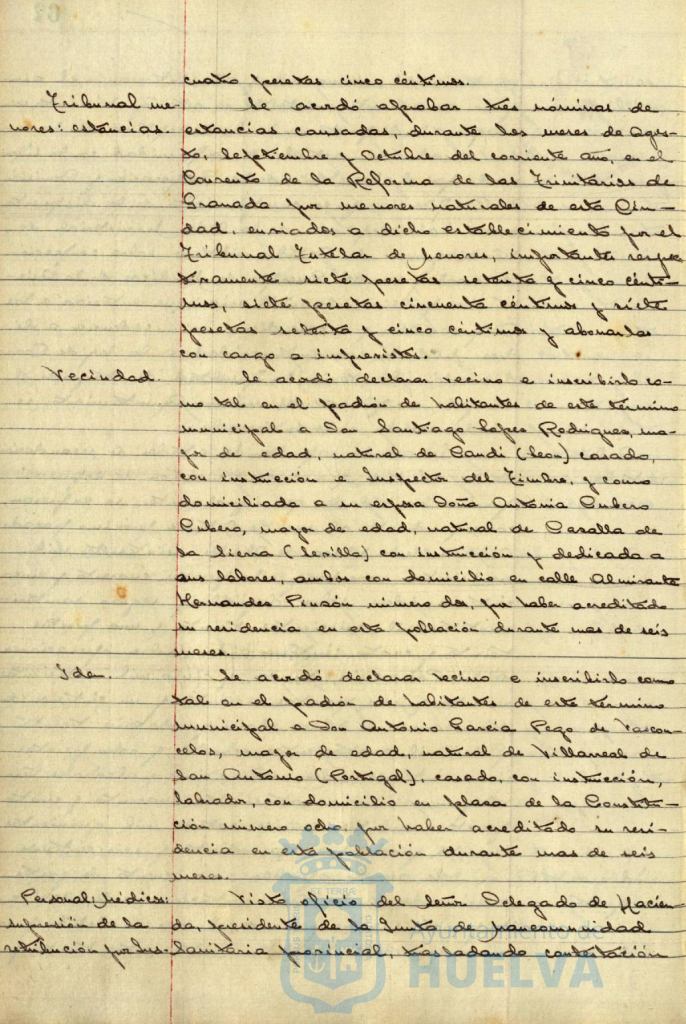 cuatro pesetas cinco céntimos.
Tribunal me- Se acordó aprobar tres nóminas de
nores: estancias. estancias causadas, durante los meses de Agos-
to, Septiembre y Octubre del corriente año, en el
Convento de la Reforma de las Trinitarias de
Granada por menores naturales de esta Ciu-
dad, enviados a dicho establecimiento por el
Tribunal Tutelar de Menores, importantes respec
tivamente siete pesetas setenta y cinco cénti-
mos, siete pesetas cincuenta céntimos y siete
pesetas setenta y cinco céntimos y abonarlas
con cargo a imprevistos.
Vecindad. Se acordó declarar vecino e inscribirlo co-
mo tal en el padrón de habitantes de este término
municipal a Don Santiago López Rodríguez, ma-
yor de edad, natural de (León) casado,
con instrucción e Inspector del Timbre, y como
domiciliada a su esposa Doña Antonia Cubero
Cubero, mayor de edad, natural de Cazalla de
la Sierra (Sevilla) con instrucción y dedicada a
sus labores, ambos con domicilio en calle Almirante
Hernandez Pinzón número dos, por haber acreditado
su residencia en esta población durante mas de seis
meses.
Iden. Se acordó declarar vecino e inscribirlo como
tal en el padrón de habitantes de este término
municipal a Don Antonio García Pego de Vascon-
celos, mayor de edad, natural de Villarreal de
San António (Portugal), casado, con instrucción,
labrador, con domicilio en plaza de la Constitu-
ción número ocho, por haber acreditado su resi-
dencia en esta población durante mas de seis
meses.
Personal; Médicos: Visto oficio del Señor Delegado de Hacien-
supresión de la da, presidente de la Junta de mancomunidad
retribución por Ins- Sanitaria provincial, trasladando contestación
Ayuntamiento de
HUELVA